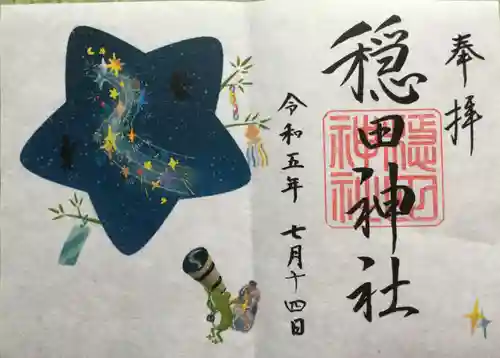 奉拝
穏田神社
穏田神社
令和五年 七月十四日